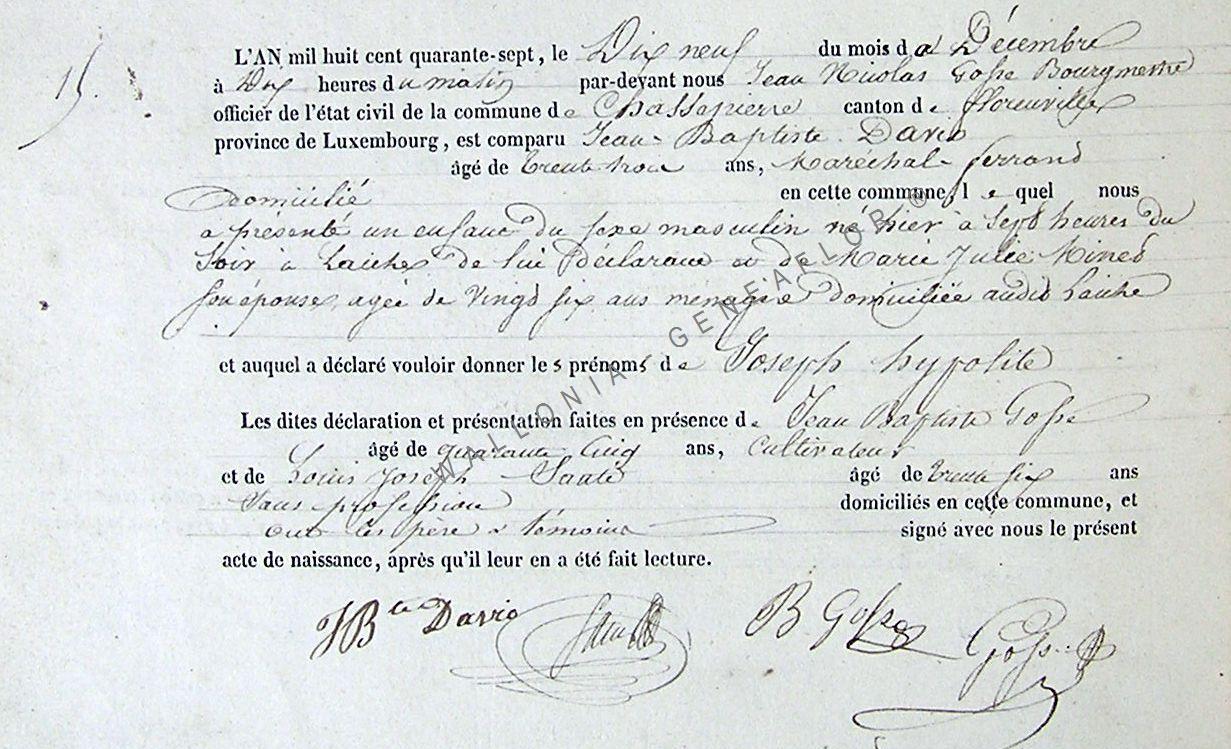 15.
L'AN mil huit cent quarante-sept, le Dix neuf du mois de Décembre
à Dix heures du matin par-devant nous Jean Nicolas Gosse Bourgmestre
officier de l'état civil de la commune de Chassepierre canton de Florenville
province de Luxembourg, est comparu Jean-Baptiste David
âgé de trente trois ans, Maréchal-ferrand
Domicilié en cette commune, le quel nous
a présenté un enfant du sexe masculin né hier à Sept heures du
Soir à Laiche de lui déclarant et de Marie Julie
son épouse, agée de Vingt six ans ménagère domiciliée audit Laiche
et auquel a déclaré vouloir donner les prénoms de Joseph hypolite
Les dites déclaration et présentation faites en présence de Jean Baptiste Gosse
âgé de quarante cinq ans, Cultivateur
et de Louis Joseph âgé de trente six ans
Sans profession domiciliés en cette commune, et
ont les père & témoins signé avec nous le présent
acte de naissance, après qu'il leur en a été fait lecture.
JBte David B Gosse Gosse
WALLONIA GENEALOR ©